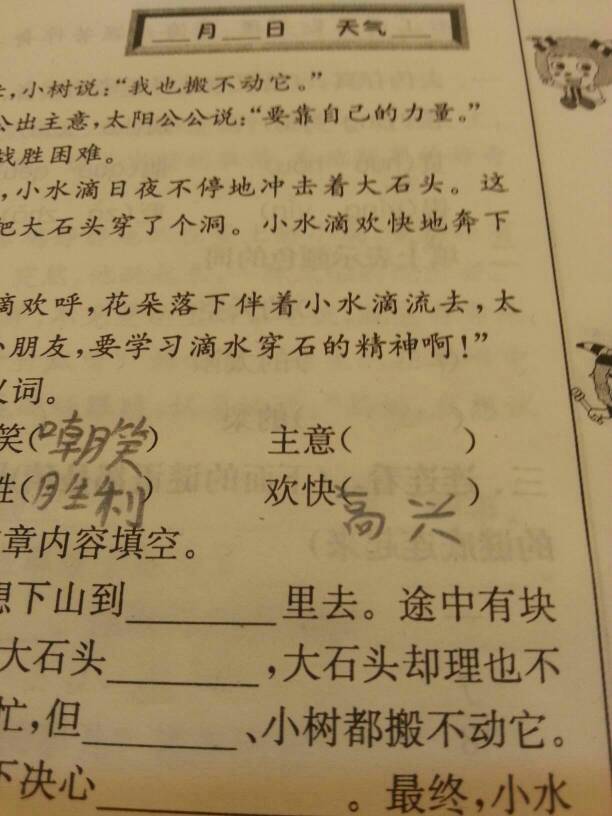 月 日 天气
，小树说：“我也搬不动它。”
公出主意，太阳公公说：“要靠自己的力量。”
战胜困难。
，小水滴日夜不停地冲击着大石头。这
把大石头穿了个洞。小水滴欢快地奔下
滴欢呼，花朵落下伴着小水滴流去，太
小朋友，要学习滴水穿石的精神啊！”
义词。
笑(嘲笑) 主意( )
胜(胜利) 欢快(高兴)
章内容填空。
想下山到______里去。途中有块
大石头______，大石头却理也不
忙，但______、小树都搬不动它。
下决心______。最终，小水